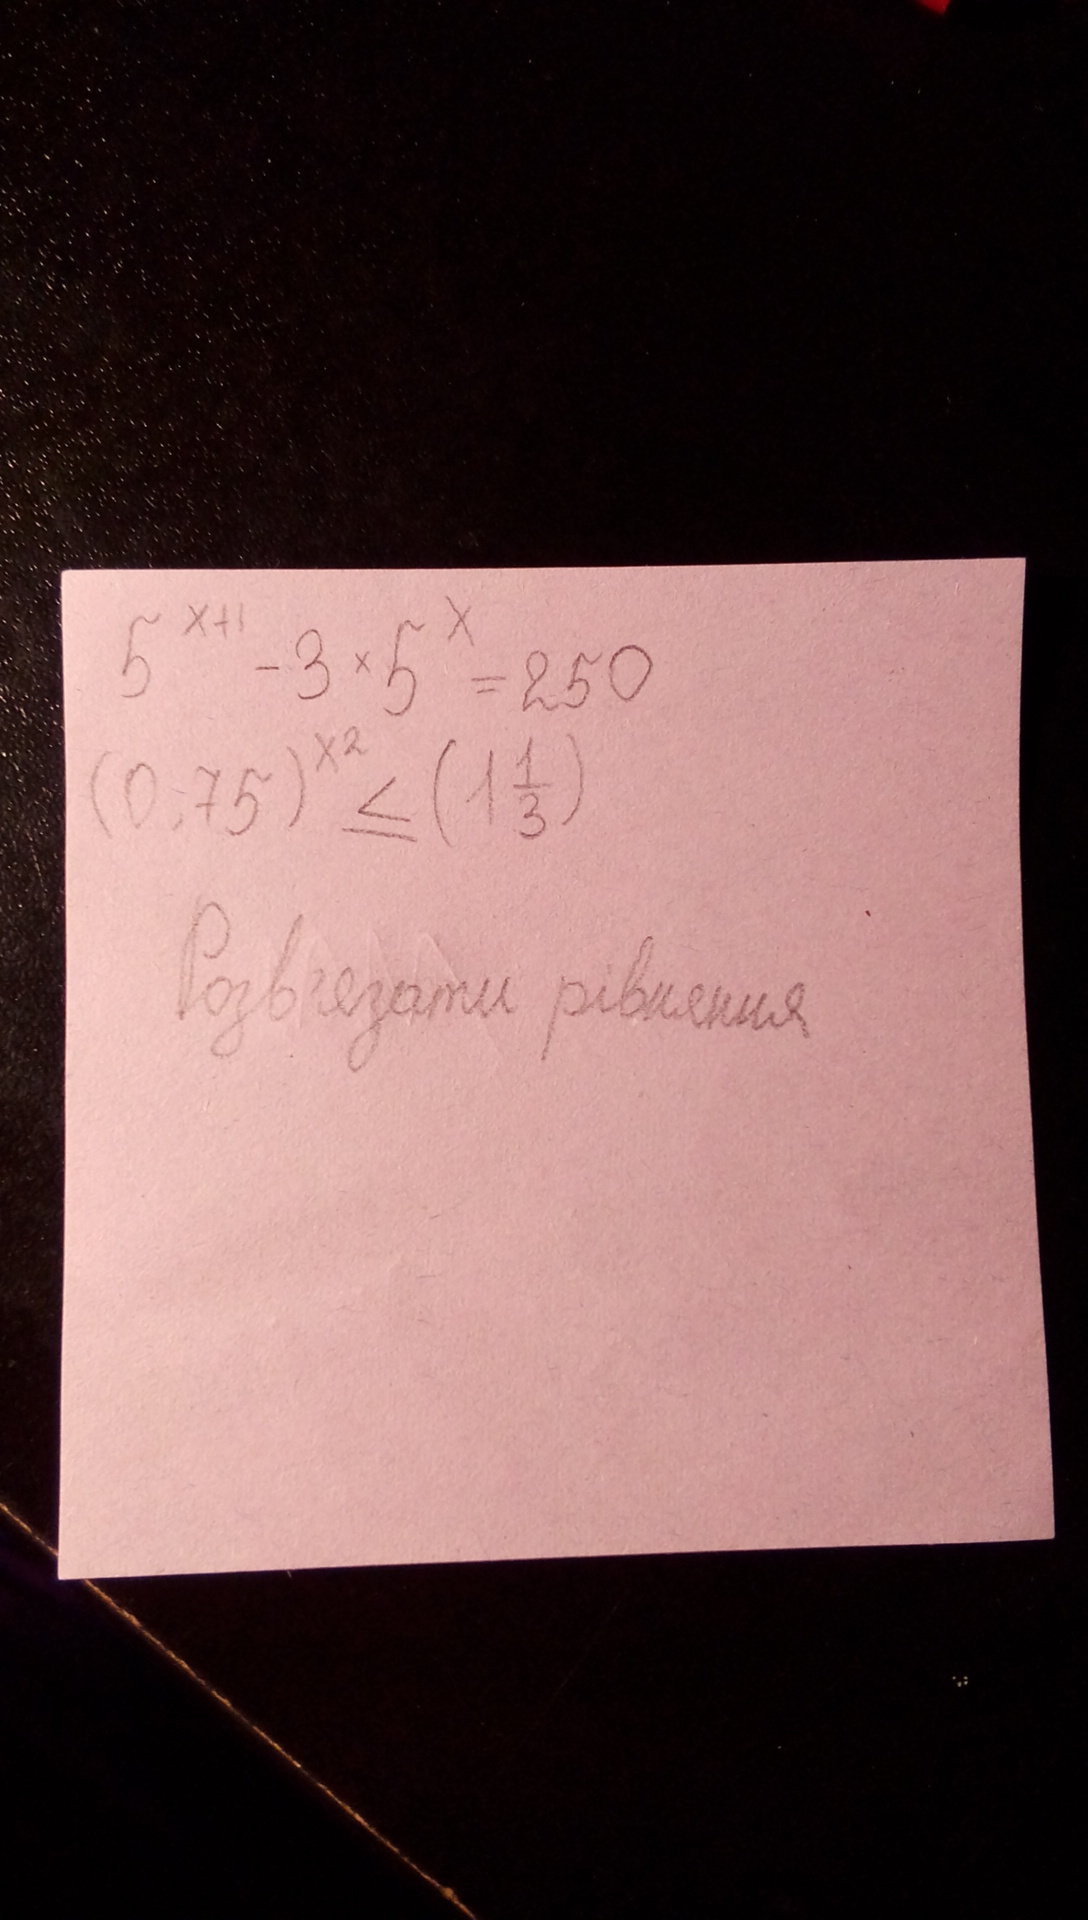 5^{x+1} - 3 × 5^x = 250
(0,75)^{x2} ≤ (1 1/3)
Розв'язати рівняння